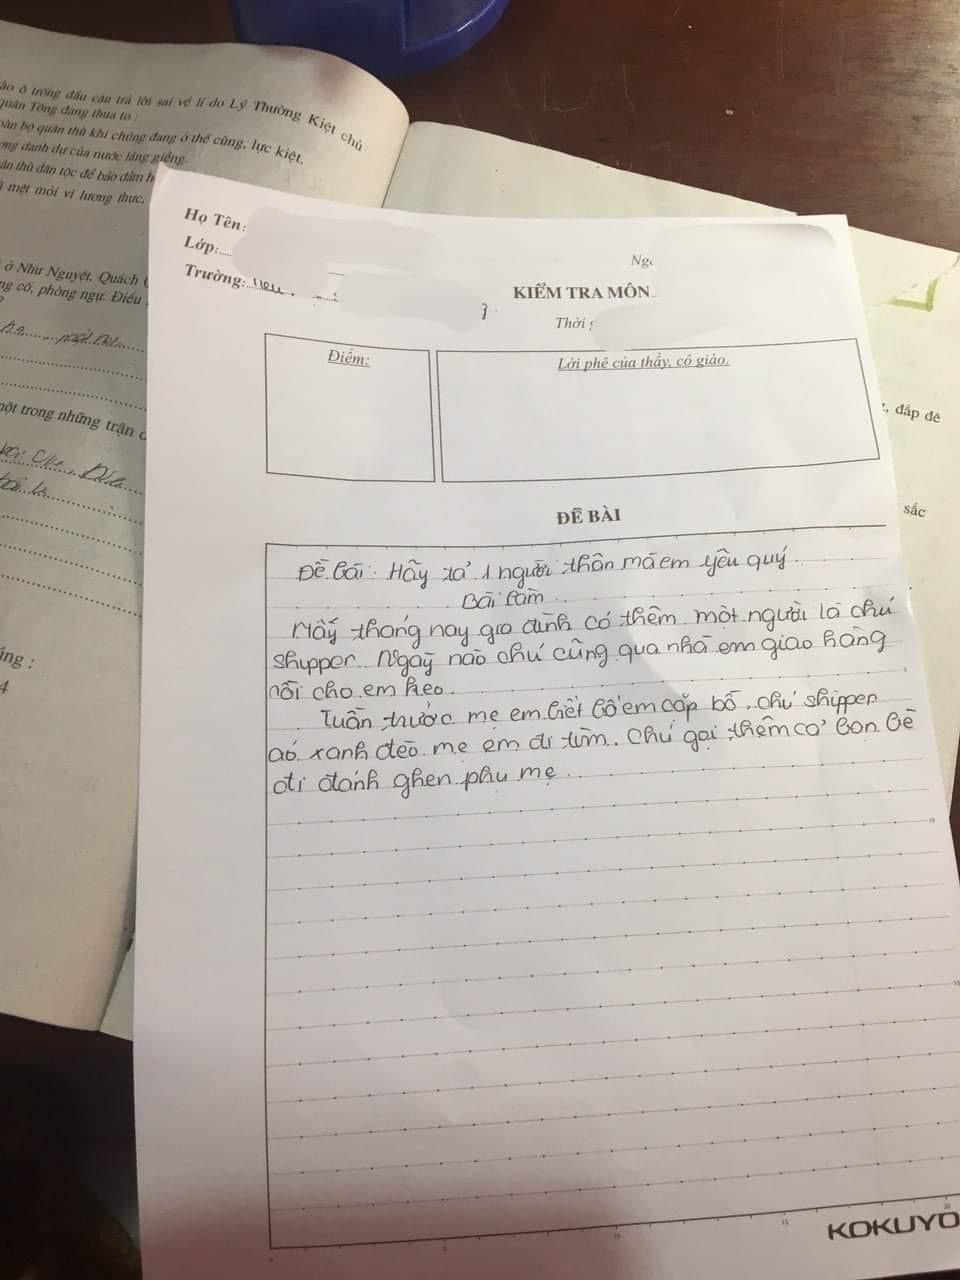 ào ô trống đầu câu trả lời sai về lí do Lý Thường Kiệt chủ
quân Tống đang thua to :
oàn bộ quân thù khi chúng đang ở thế cùng, lực kiệt.
ơng danh dự của nước láng giềng.
ân thù dân tộc để bảo đảm h
mệt mỏi vì lương thực,
ở Như Nguyệt. Quách
ng cố, phòng ngự. Điều
một trong những trận
úng :
4
Họ Tên:
Lớp:
Trường:
Ng
KIỂM TRA MÔN
Thời g
Điểm:
Lời phê của thầy, cô giáo.
, đắp đê
sắc
ĐỀ BÀI
Đề bài: Hãy tả 1 người thân mà em yêu quý
Bài làm
Mấy tháng nay gia đình có thêm một người là chú
shipper. Ngày nào chú cũng qua nhà em giao hàng
rồi cho em kẹo.
Tuần trước mẹ em biết bố em cặp bồ, chú shipper
áo xanh đèo mẹ em đi tìm. Chú gọi thêm cả bạn bè
đi đánh ghen phụ mẹ.
KOKUYO